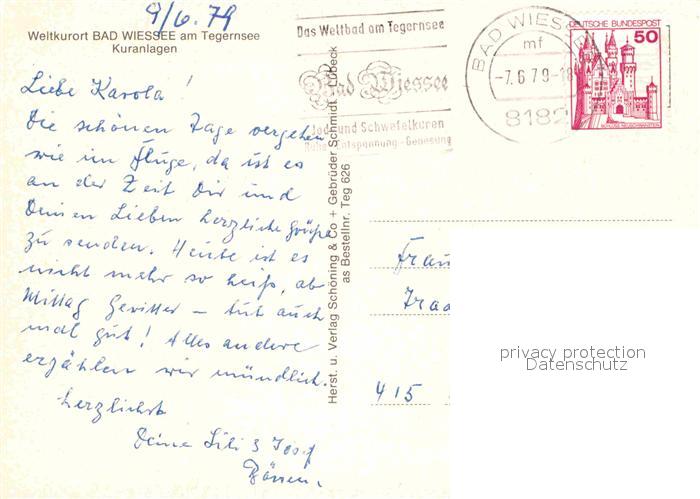 9/6.79
Weltkurort BAD WIESSEE am Tegernsee
Kuranlagen
Liebe Karola!
Die schönen Tage vergehen
wie im Fluge, da ist es
an der Zeit Dir und
Deinen Lieben herzliche Grüße
zu senden. Heute ist es
nicht mehr so heiß, ab
Mittag Gewitter – tut auch
mal gut! Alles andere
erzählen wir mündlich.
Herzlichst
Deine Lili & Josef
Herst. u. Verlag Schöning & Co + Gebrüder Schmidt, Lübeck
as Bestellnr. Teg 626
Das Weltbad am Tegernsee
Bad Wiessee
Jod- und Schwefelkuren
Ruhe - Entspannung - Genesung
BAD WIESSEE
mf
-7.6.79-18
8182
DEUTSCHE BUNDESPOST
50
SCHLOSS NEUSCHWANSTEIN
Frau
415
privacy protection
Datenschutz